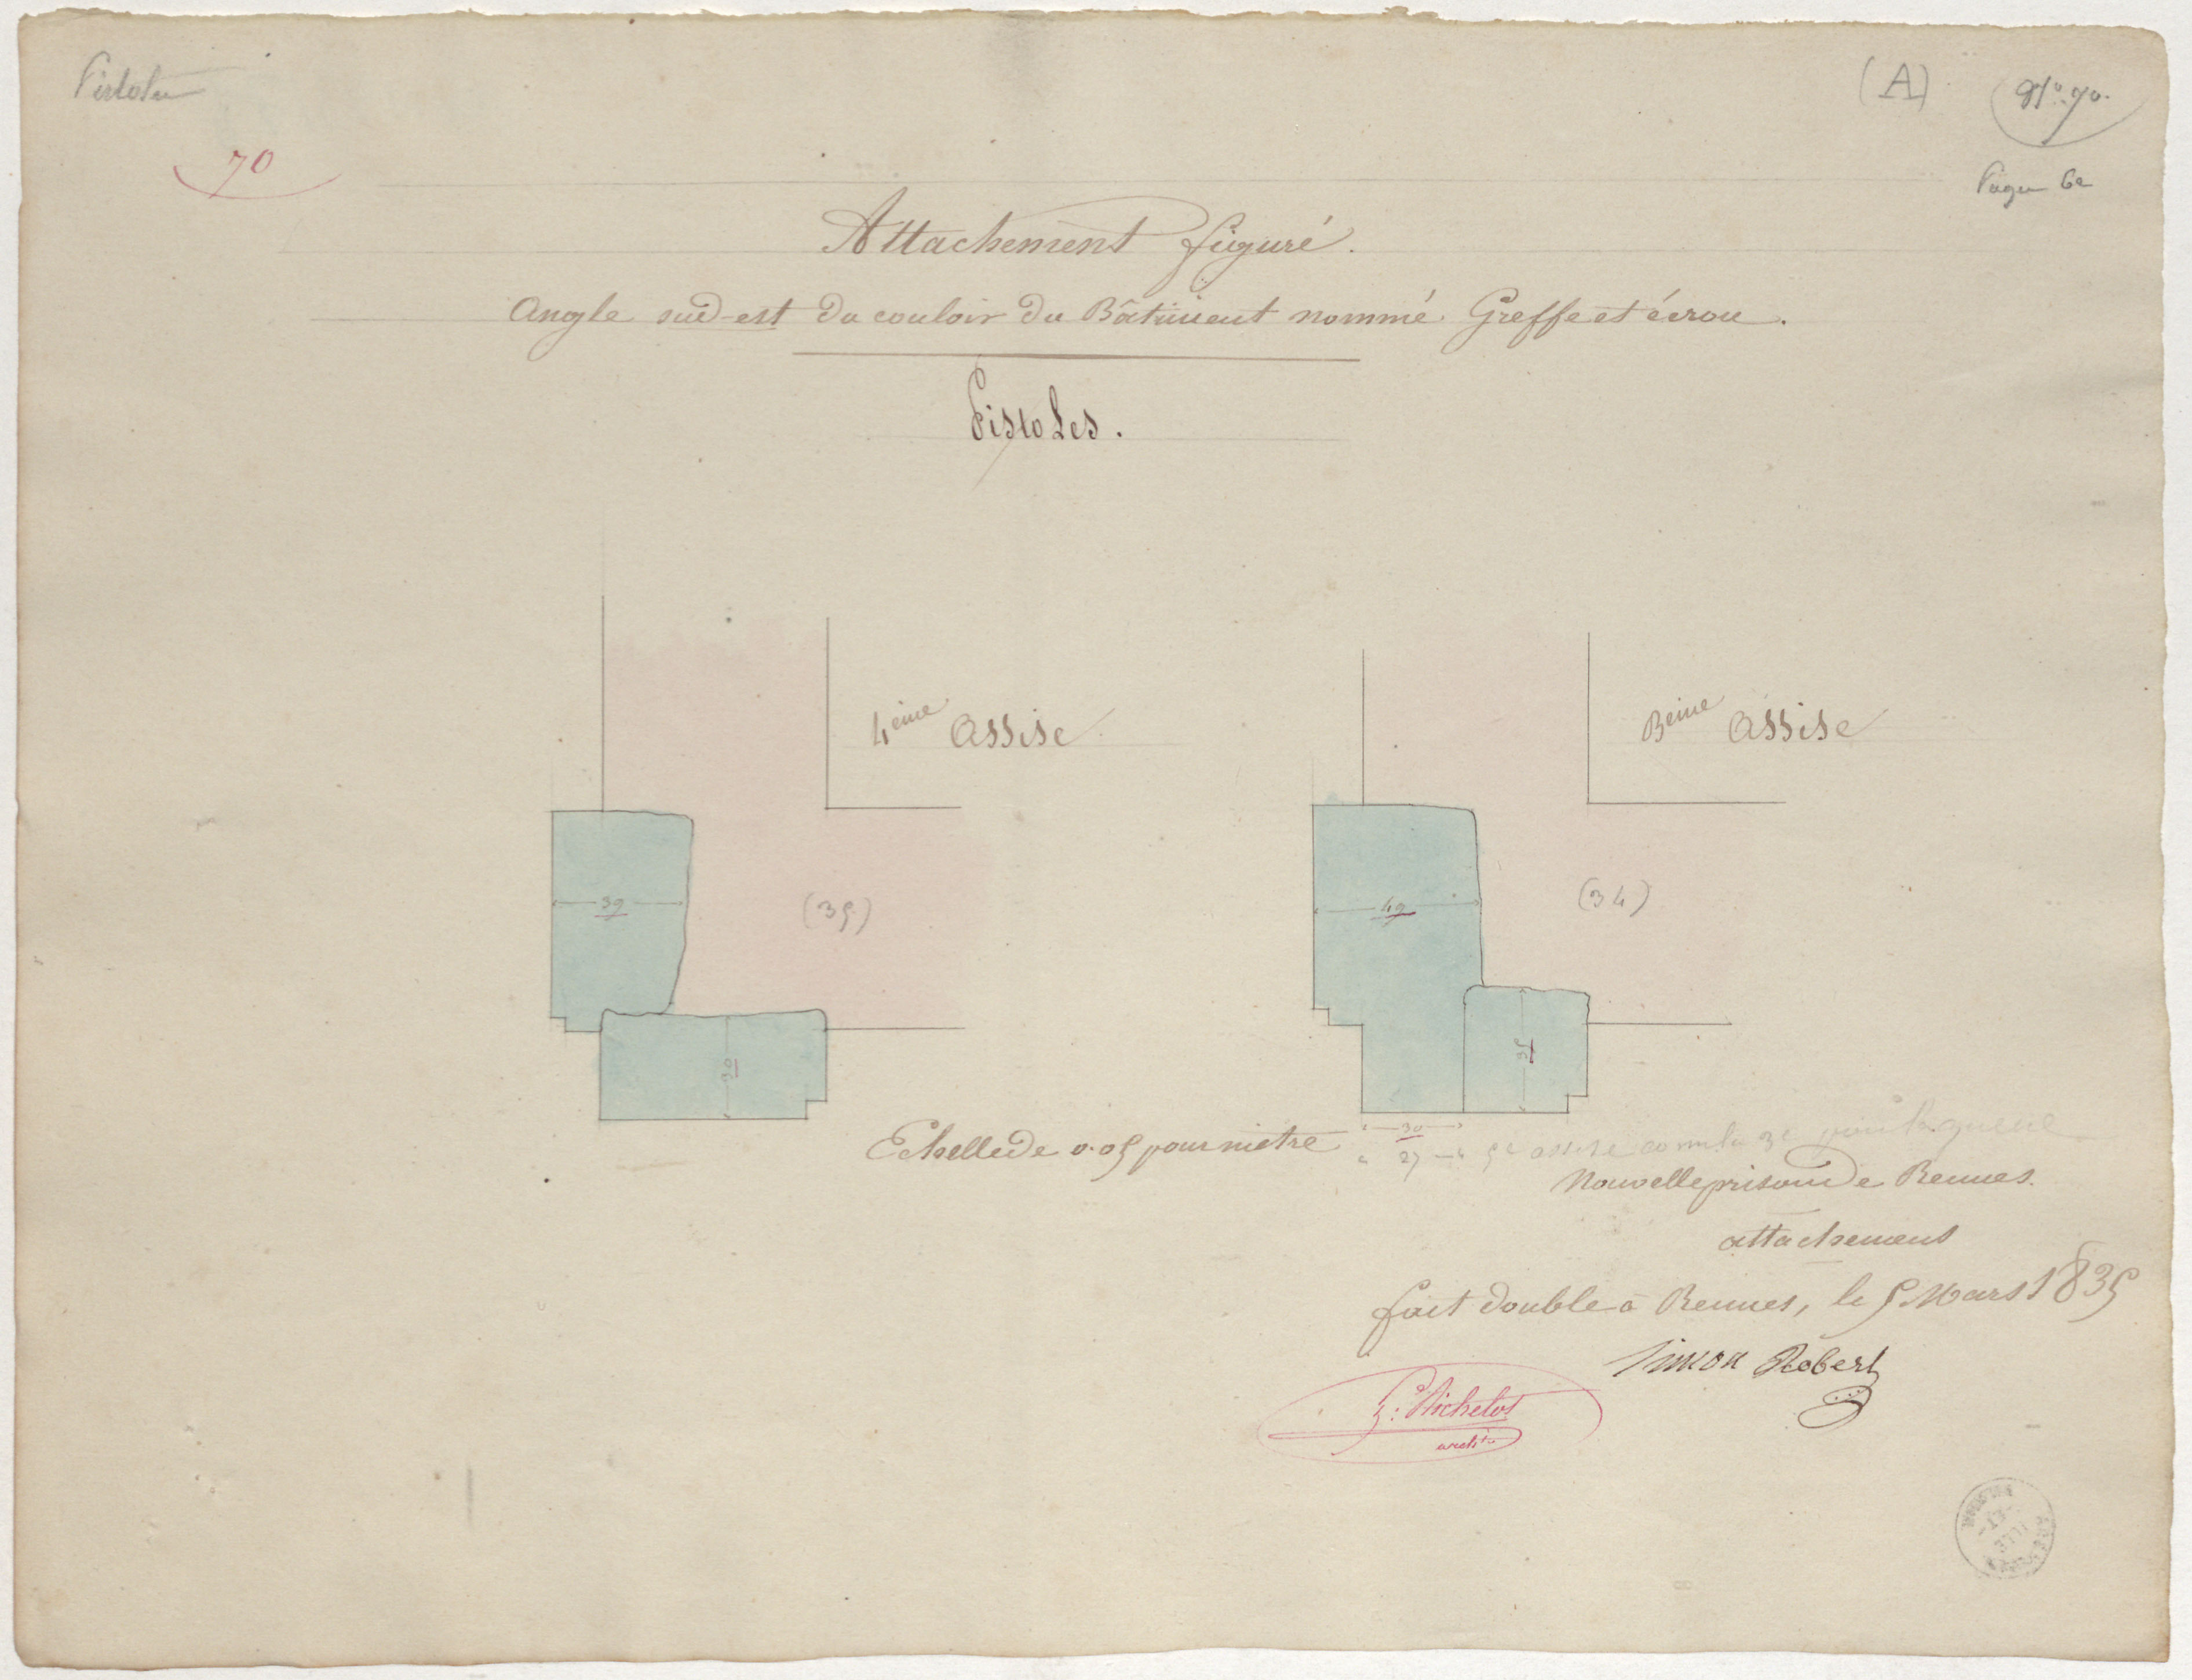 Pistoles
(A)
N.º 70.
70
Page 62
Attachement figuré.
Angle sud-est du couloir du Bâtiment nommé Greffe et écrou.
Pistoles.
4ième Assise
3eme Assise
39
(35)
49
(34)
30
35
Echelle de 0.05 pour mètre
30
27 5e assise comme la 3e pour la queue
Nouvelle prison de Rennes.
attachement
fait double à Rennes, le 5 Mars 1835
Simon Robert
Richelot
archte